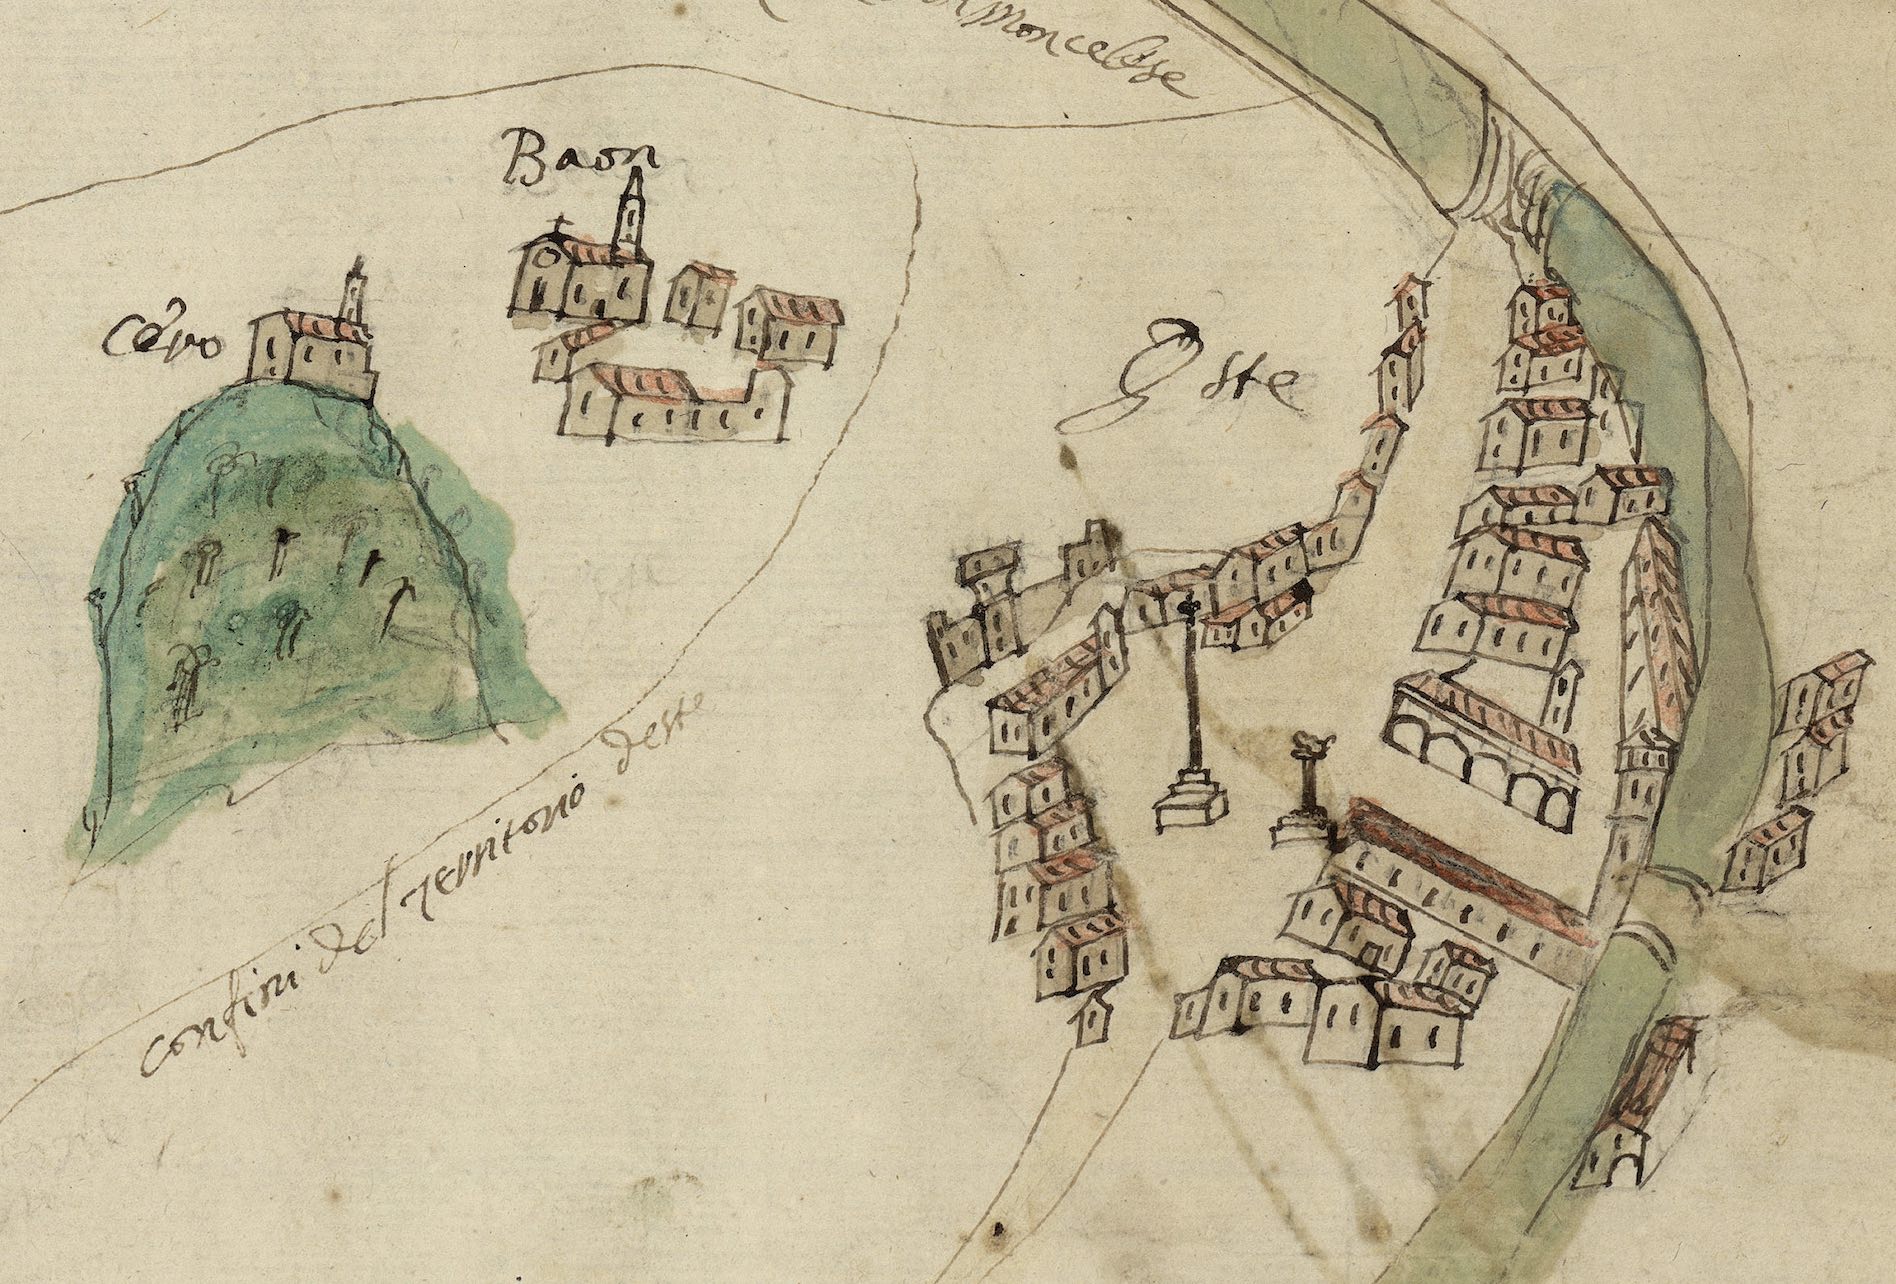 moncelese
Baon
Cero
Este
confini del territorio deste